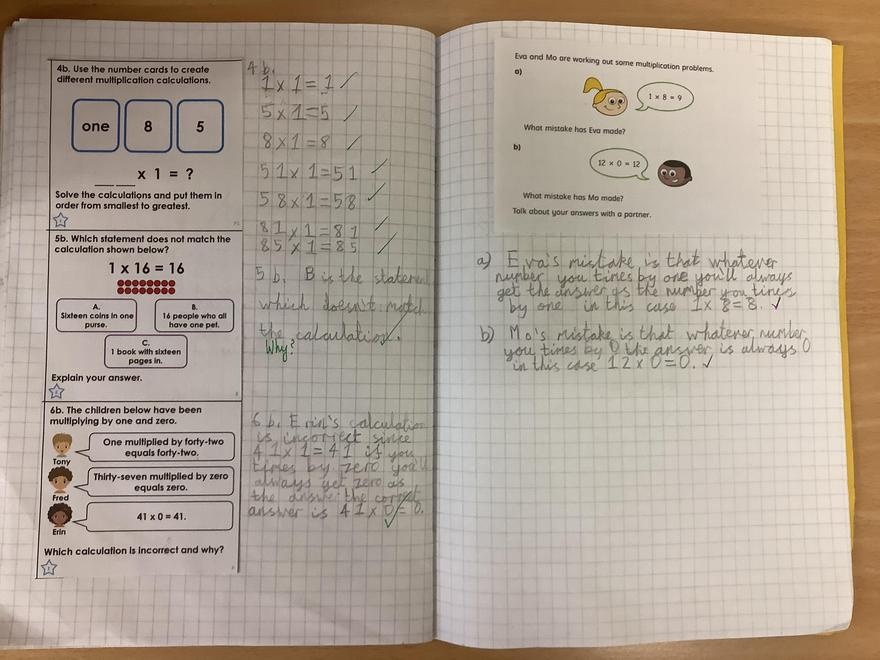 4b. Use the number cards to create
different multiplication calculations.
one
8
5
__ __ x 1 = ?
Solve the calculations and put them in
order from smallest to greatest.
5b. Which statement does not match the
calculation shown below?
1 x 16 = 16
A.
Sixteen coins in one
purse.
B.
16 people who all
have one pet.
C.
1 book with sixteen
pages in.
Explain your answer.
6b. The children below have been
multiplying by one and zero.
One multiplied by forty-two
equals forty-two.
Tony
Thirty-seven multiplied by zero
equals zero.
Fred
41 x 0 = 41.
Erin
Which calculation is incorrect and why?
4b.
1 x 1 = 1
5 x 1 = 5
8 x 1 = 8
51 x 1 = 51
58 x 1 = 58
81 x 1 = 81
85 x 1 = 85
5 b. B is the statement
which doesn't match
the calculation.
Why?
6 b. Erin's calculation
is incorrect since
41 x 1 = 41 if you
times by zero you'll
always get zero as
the answer the correct
answer is 41 x 0 = 0.
Eva and Mo are working out some multiplication problems.
a)
1 × 8 = 9
What mistake has Eva made?
b)
12 × 0 = 12
What mistake has Mo made?
Talk about your answers with a partner.
a) Eva's mistake is that whatever
number you times by one you'll always
get the answer as the number you times
by one in this case 1 x 8 = 8.
b) Mo's mistake is that whatever number
you times by 0 the answer is always 0
in this case 12 x 0 = 0.